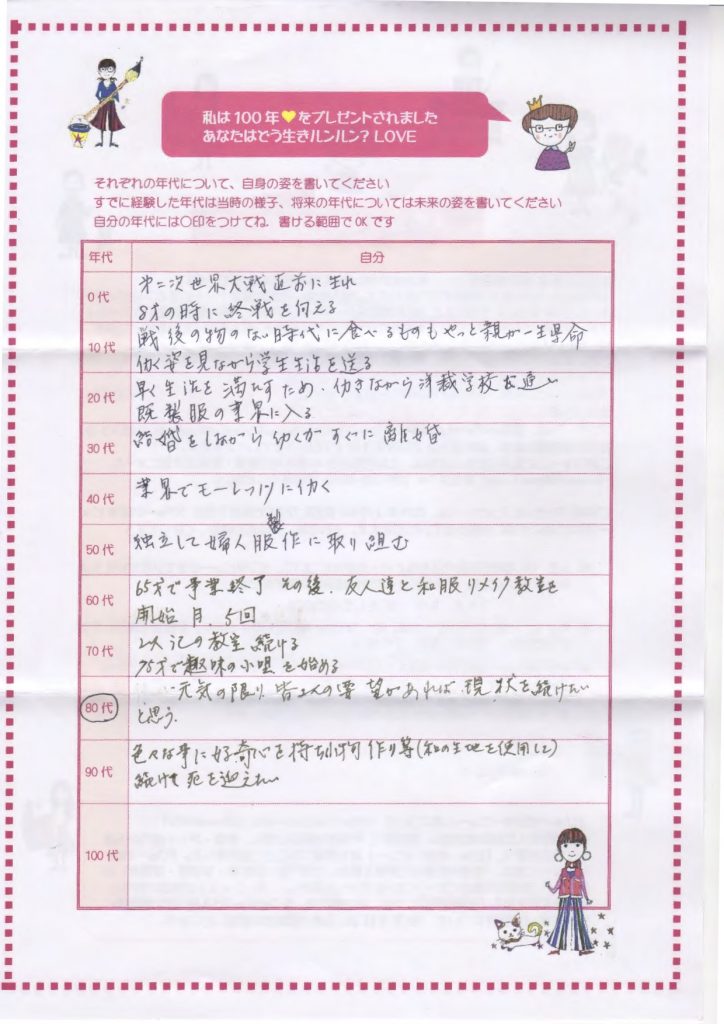 私は100年💛をプレゼントされました
あなたはどう生きルンルン? LOVE
それぞれの年代について、自身の姿を書いてください
すでに経験した年代は当時の様子、将来の年代については未来の姿を書いてください
自分の年代には○印をつけてね. 書ける範囲でOKです
年代 自分
0代 第二次世界大戦直前に生れ
8才の時に終戦を向える
10代 戦後の物のない時代に食べるものもやっと親が一生県命
働く姿を見ながら学生生活を送る
20代 早く生活を満たすため、働きながら洋裁学校を通い
既製服の業界に入る
30代 結婚をしながら働くがすぐに離婚
40代 業界でモーレツに働く
50代 独立して婦人服製作に取り組む
60代 65才で事業終了 その後、友人達と和服リメイク教室を
開始 月、5回
70代 以記の教室続ける
75才で趣味の小唄を始める
80代 元気の限り皆さんの要望があれば、現状を続けたい
と思う.
90代 色々な事に好奇心を持ち小物作り等(和の生地を使用して)
続けて死を迎えたい
100代